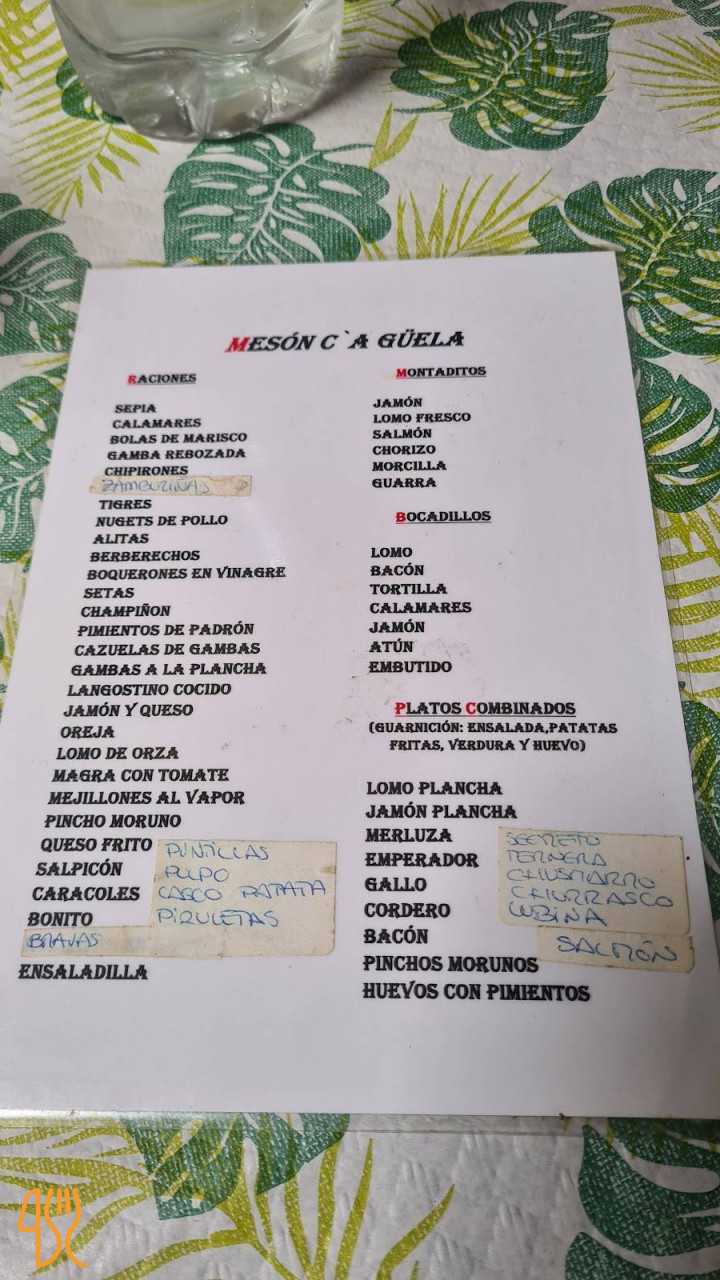 MESÓN C`A GÜELA
RACIONES
SEPIA
CALAMARES
BOLAS DE MARISCO
GAMBA REBOZADA
CHIPIRONES
ZAMBURIÑAS
TIGRES
NUGETS DE POLLO
ALITAS
BERBERECHOS
BOQUERONES EN VINAGRE
SETAS
CHAMPIÑON
PIMIENTOS DE PADRÓN
CAZUELAS DE GAMBAS
GAMBAS A LA PLANCHA
LANGOSTINO COCIDO
JAMÓN Y QUESO
OREJA
LOMO DE ORZA
MAGRA CON TOMATE
MEJILLONES AL VAPOR
PINCHO MORUNO
QUESO FRITO
SALPICÓN
CARACOLES
BONITO
BRAVAS
ENSALADILLA
PUNTILLAS
PULPO
CASCO PATATA
PIRULETAS
MONTADITOS
JAMÓN
LOMO FRESCO
SALMÓN
CHORIZO
MORCILLA
GUARRA
BOCADILLOS
LOMO
BACÓN
TORTILLA
CALAMARES
JAMÓN
ATÚN
EMBUTIDO
PLATOS COMBINADOS
(GUARNICIÓN: ENSALADA,PATATAS
FRITAS, VERDURA Y HUEVO)
LOMO PLANCHA
JAMÓN PLANCHA
MERLUZA
EMPERADOR
GALLO
CORDERO
BACÓN
PINCHOS MORUNOS
HUEVOS CON PIMIENTOS
SECRETO
TERNERA
CHUSMARRO
CHURRASCO
LUBINA
SALMÓN